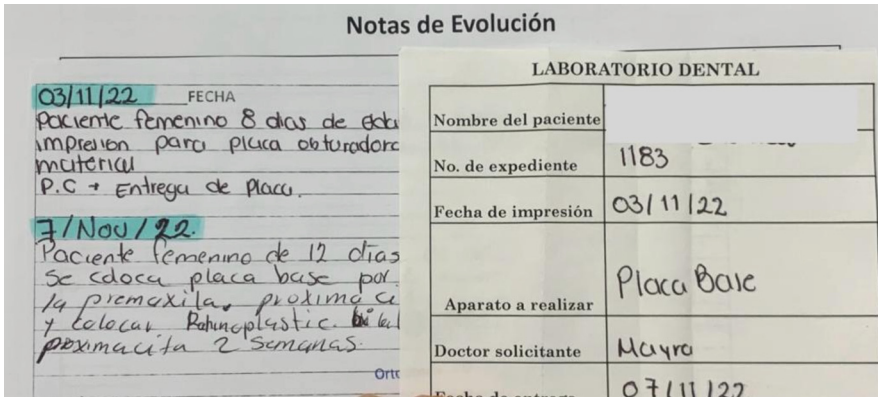 Notas de Evolución
03/11/22 FECHA
Paciente femenino 8 dias de eda
impresion para placa obturadora
material
P.C → Entrega de placa.
7/Nov/22.
Paciente femenino de 12 dias
Se coloca placa base por
la premaxila. proxima c
y colocar
proxima cita 2 semanas.
Orto
LABORATORIO DENTAL
Nombre del paciente
No. de expediente 1183
Fecha de impresión 03/11/22
Aparato a realizar Placa Base
Doctor solicitante Mayra
Fecha de entrega 07/11/22